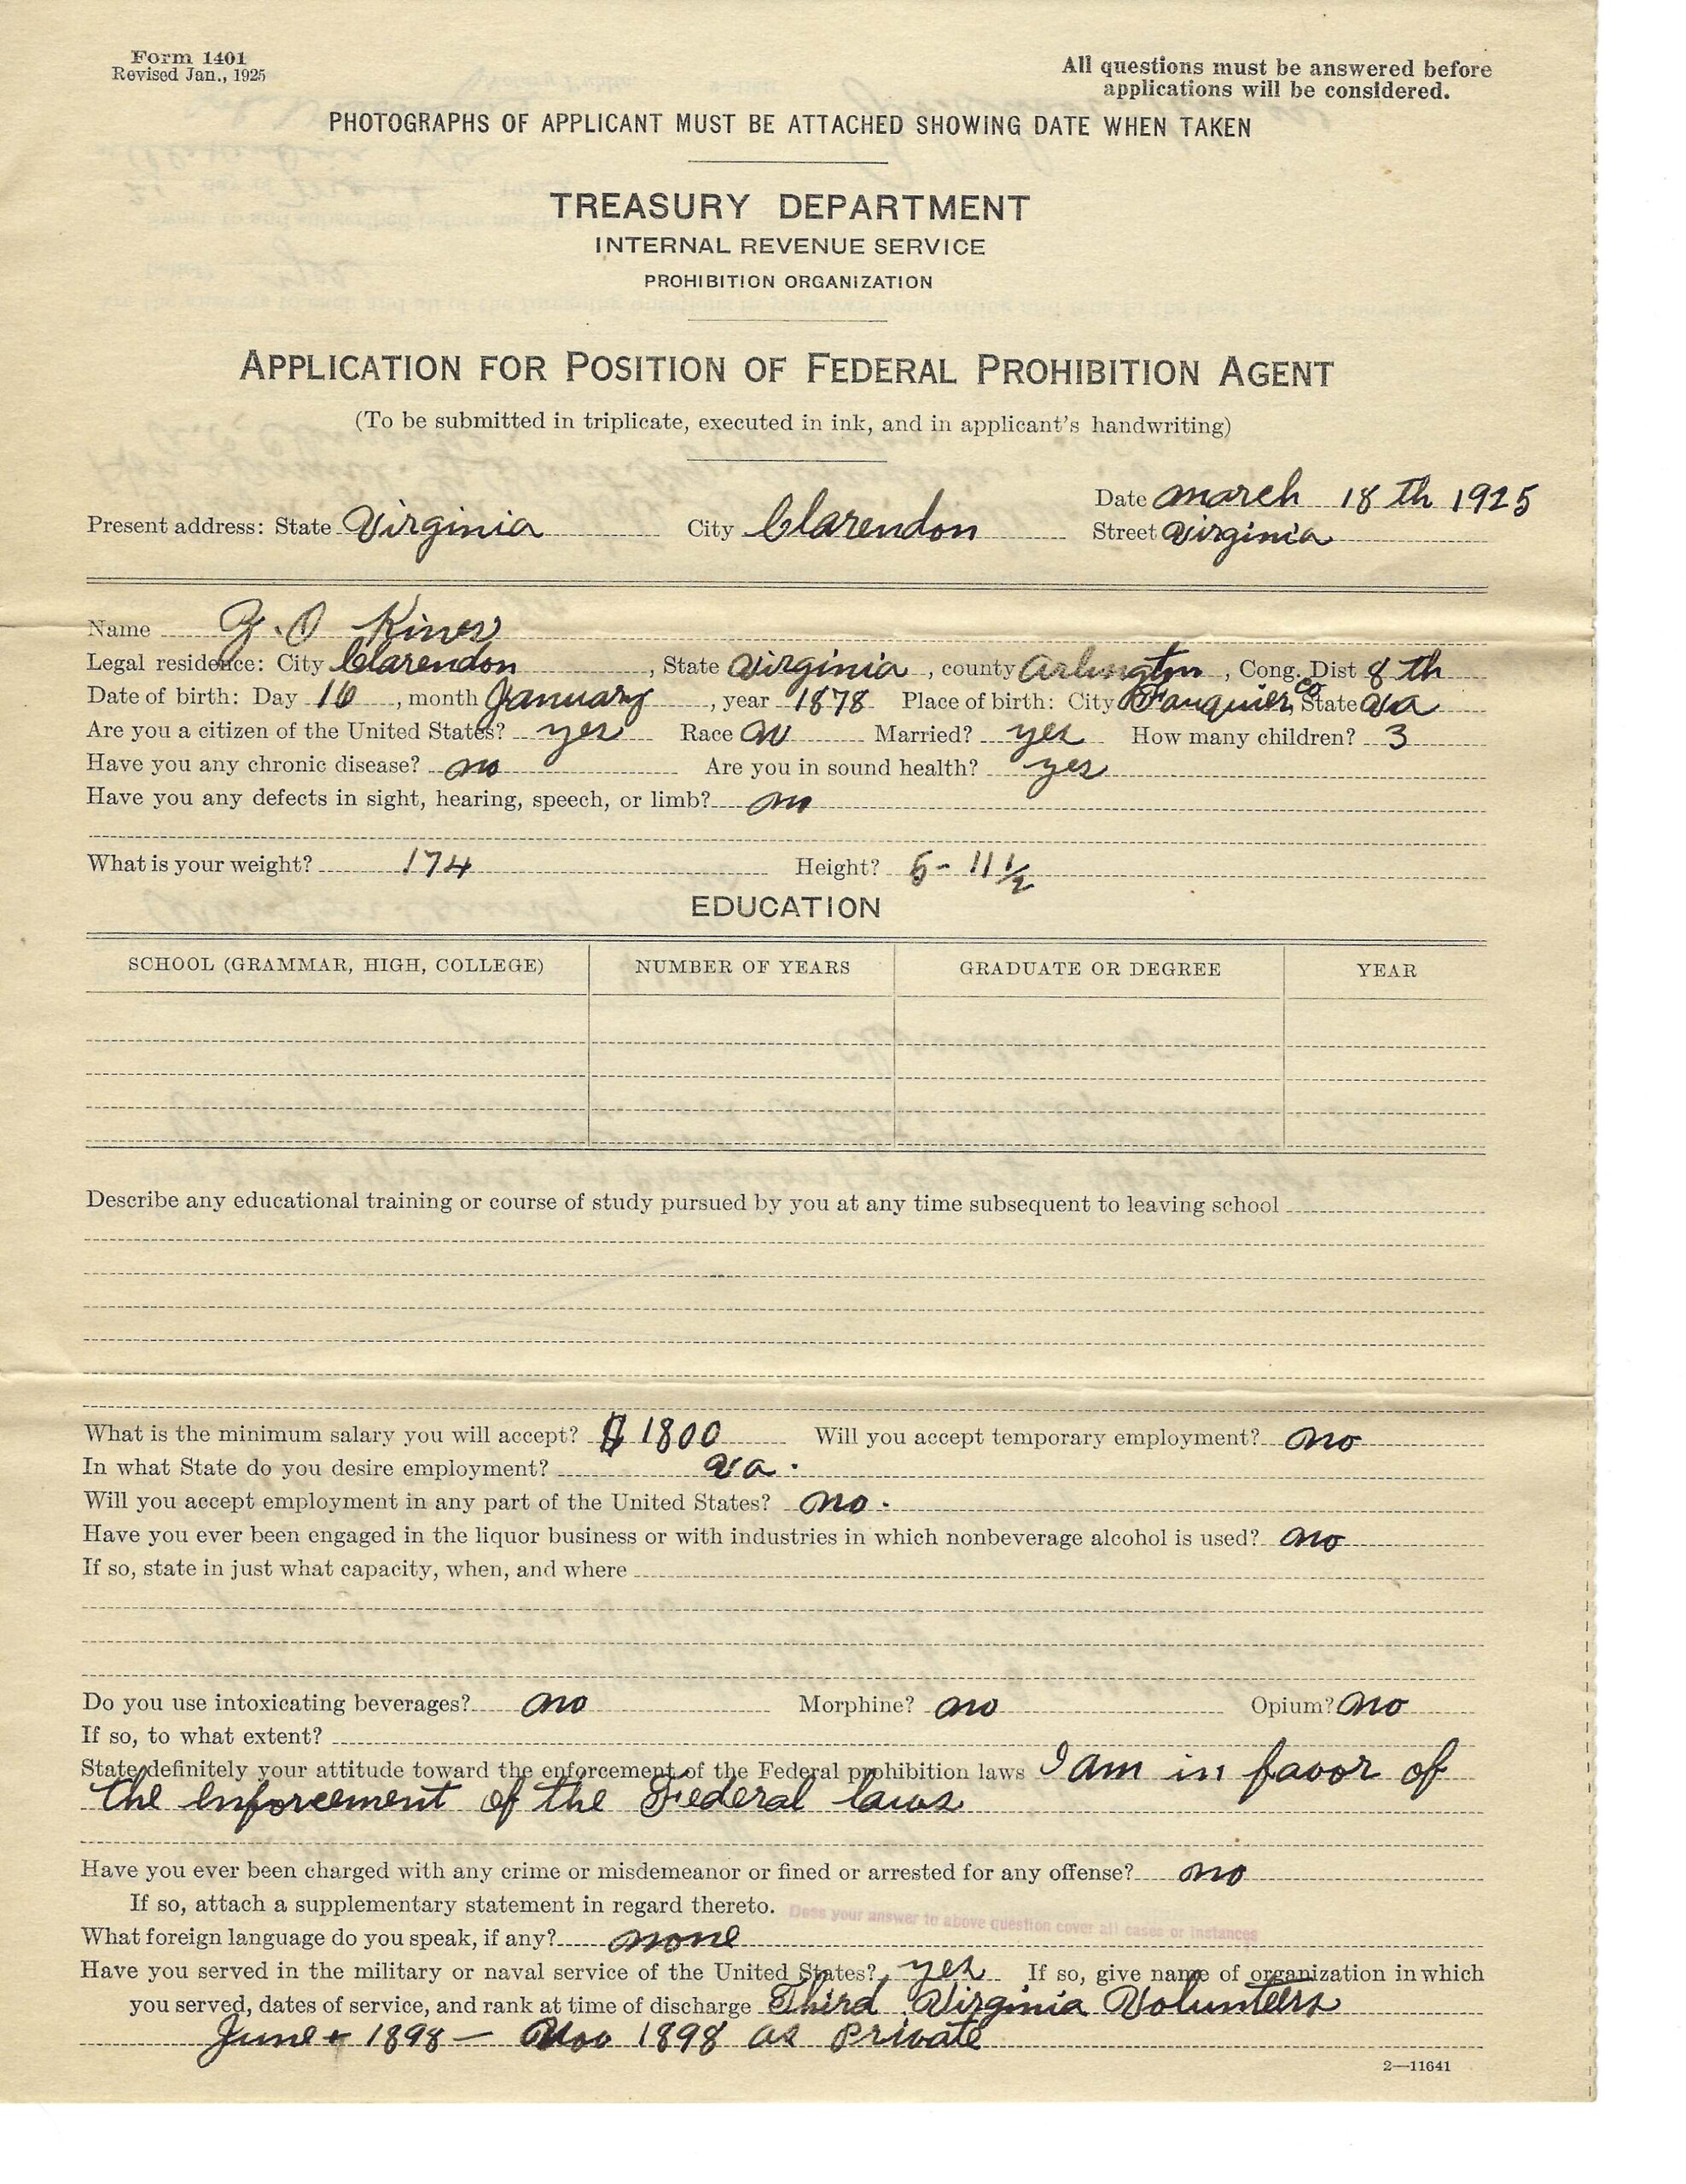 Form 1401
Revised Jan., 1925
All questions must be answered before
applications will be considered.
PHOTOGRAPHS OF APPLICANT MUST BE ATTACHED SHOWING DATE WHEN TAKEN
TREASURY DEPARTMENT
INTERNAL REVENUE SERVICE
PROHIBITION ORGANIZATION
APPLICATION FOR POSITION OF FEDERAL PROHIBITION AGENT
(To be submitted in triplicate, executed in ink, and in applicant's handwriting)
Date March 18th 1925
Present address: State Virginia City Clarendon Street Virginia
Name O Kines
Legal residence: City Clarendon, State Virginia, county Arlington, Cong. Dist 8th
Date of birth: Day 16, month January, year 1878 Place of birth: City Fauquier Co, State Va
Are you a citizen of the United States? yes Race W Married? yes How many children? 3
Have you any chronic disease? no Are you in sound health? yes
Have you any defects in sight, hearing, speech, or limb? no
What is your weight? 174 Height? 5-11 ½
EDUCATION
SCHOOL (GRAMMAR, HIGH, COLLEGE) NUMBER OF YEARS GRADUATE OR DEGREE YEAR
Describe any educational training or course of study pursued by you at any time subsequent to leaving school
What is the minimum salary you will accept? $1800 Will you accept temporary employment? no
In what State do you desire employment? Va.
Will you accept employment in any part of the United States? no.
Have you ever been engaged in the liquor business or with industries in which nonbeverage alcohol is used? no
If so, state in just what capacity, when, and where
Do you use intoxicating beverages? no Morphine? no Opium? no
If so, to what extent?
State definitely your attitude toward the enforcement of the Federal prohibition laws I am in favor of
the enforcement of the Federal laws
Have you ever been charged with any crime or misdemeanor or fined or arrested for any offense? no
If so, attach a supplementary statement in regard thereto.
Does your answer to above question cover all cases or instances
What foreign language do you speak, if any? none
Have you served in the military or naval service of the United States? yes If so, give name of organization in which
you served, dates of service, and rank at time of discharge Third Virginia Volunteers
June 1898 — Nov 1898 as private
2—11641